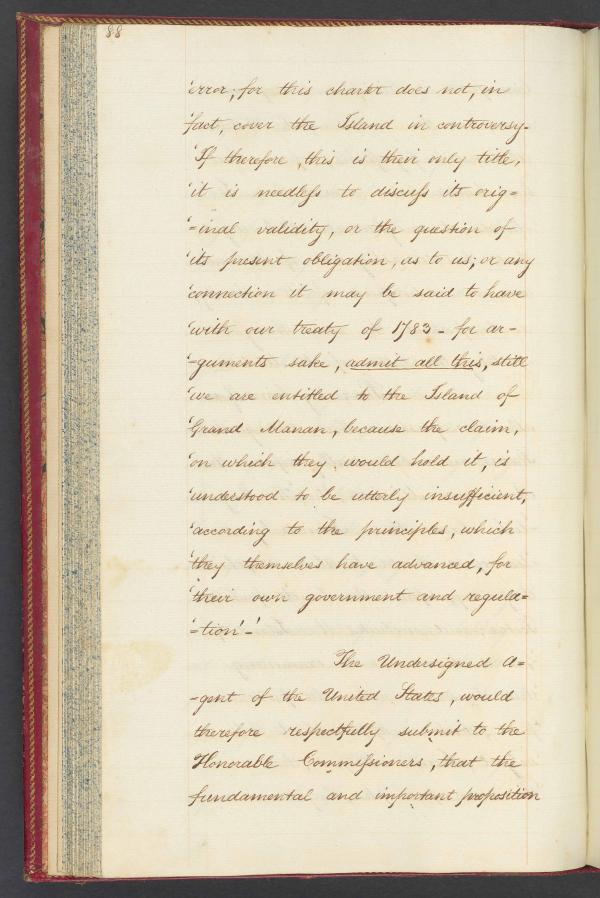 88
'error; for this charter does not, in
'fact, cover the Island in controversy-
'If therefore, this is their only title,
'it is needleſs to discuſs its orig=
'=inal validity, or the question of
'its present obligation, as to us; or any
'connection it may be said to have
'with our treaty of 1783 - for ar-
'-guments sake, admit all this, still
'we are entitled to the Island of
'Grand Manan, because the claim,
'on which they would hold it, is
'understood to be utterly insufficient,
'according to the principles, which
'they themselves have advanced, for
'their own government and regula=
'=tion'-'
The Undersigned A=
-gent of the United States, would
therefore respectfully submit to the
Honorable Commiſsioners, that the
fundamental and important proposition